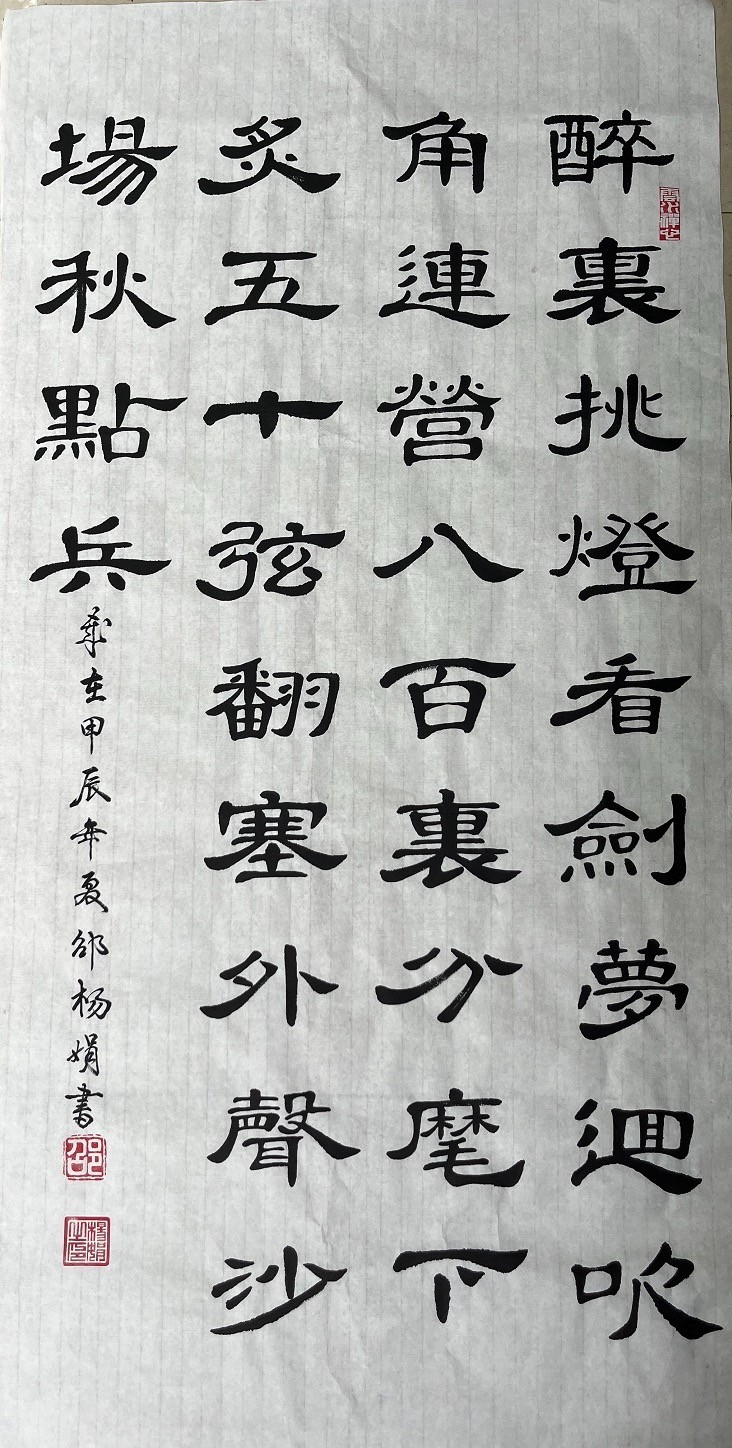 醉裏挑燈看劍夢迴吹
角連營八百裏分麾下
炙五十弦翻塞外聲沙
場秋點兵
歲在甲辰年夏邵杨娟書
邵